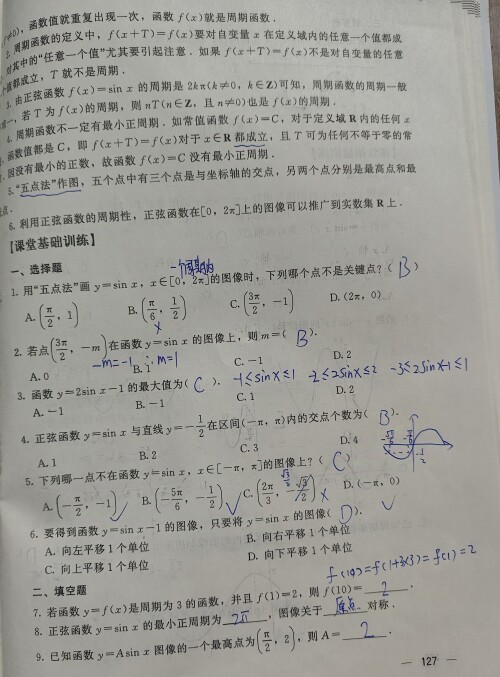 ≠0), 函数值就重复出现一次, 函数 f(x) 就是周期函数.
2. 周期函数的定义中, f(x+T)=f(x)要对自变量 x 在定义域内的任意一个值都成
对其中的“任意一个值”尤其要引起注意. 如果 f(x+T)=f(x)不是对自变量的任意
值都成立, T 就不是周期.
3. 由正弦函数 f(x)=sin x 的周期是 2kπ(k≠0, k∈Z)可知, 周期函数的周期一般
唯一, 若 T 为 f(x)的周期, 则 nT(n∈Z, 且 n≠0)也是 f(x)的周期.
4. 周期函数不一定有最小正周期. 如常值函数 f(x)=C, 对于定义域 R 内的任何 x
函数值都是 C, 即 f(x+T)=f(x)对于 x∈R 都成立, 且 T 可为任何不等于零的常
因没有最小的正数, 故函数 f(x)=C 没有最小正周期.
5. “五点法”作图, 五个点中有三个点是与坐标轴的交点, 另两个点分别是最高点和最
点.
6. 利用正弦函数的周期性, 正弦函数在[0, 2π]上的图像可以推广到实数集 R 上.
【课堂基础训练】
一、选择题
一个周期内
1. 用“五点法”画 y=sin x, x∈[0, 2π]的图像时, 下列哪个点不是关键点? ( B )
A. (π/2, 1) B. (π/6, 1/2) x C. (3π/2, -1) D. (2π, 0)
2. 若点(3π/2, -m)在函数 y=sin x 的图像上, 则 m=( B ).
A. 0 -m=-1 B. 1 ∴m=1 C. -1 D. 2
3. 函数 y=2sin x-1 的最大值为( C ). -1≤sinx≤1 -2≤2sinx≤2 -3≤2sinx-1≤1
A. -1 B. -1 C. 1 D. 2
4. 正弦函数 y=sin x 与直线 y=-1/2 在区间(-π, π)内的交点个数为( B ).
A. 1 B. 2 C. 3 D. 4 -5π/6 -π/6 -1/2
5. 下列哪一点不在函数 y=sin x, x∈[-π, π]的图像上? ( C )
A. (-π/2, -1) ✓ B. (-5π/6, -1/2) ✓ C. (2π/3, -√3/2) √3/2 x D. (-π, 0)
6. 要得到函数 y=sin x-1 的图像, 只要将 y=sin x 的图像( D ). ✓
A. 向左平移 1 个单位 B. 向右平移 1 个单位
C. 向上平移 1 个单位 D. 向下平移 1 个单位
二、填空题
f(10)=f(1+3×3)=f(1)=2
7. 若函数 y=f(x)是周期为 3 的函数, 并且 f(1)=2, 则 f(10)= 2 .
8. 正弦函数 y=sin x 的最小正周期为 2π , 图像关于 原点 对称.
9. 已知函数 y=Asin x 图像的一个最高点为(π/2, 2), 则 A= 2 .
— 127 —